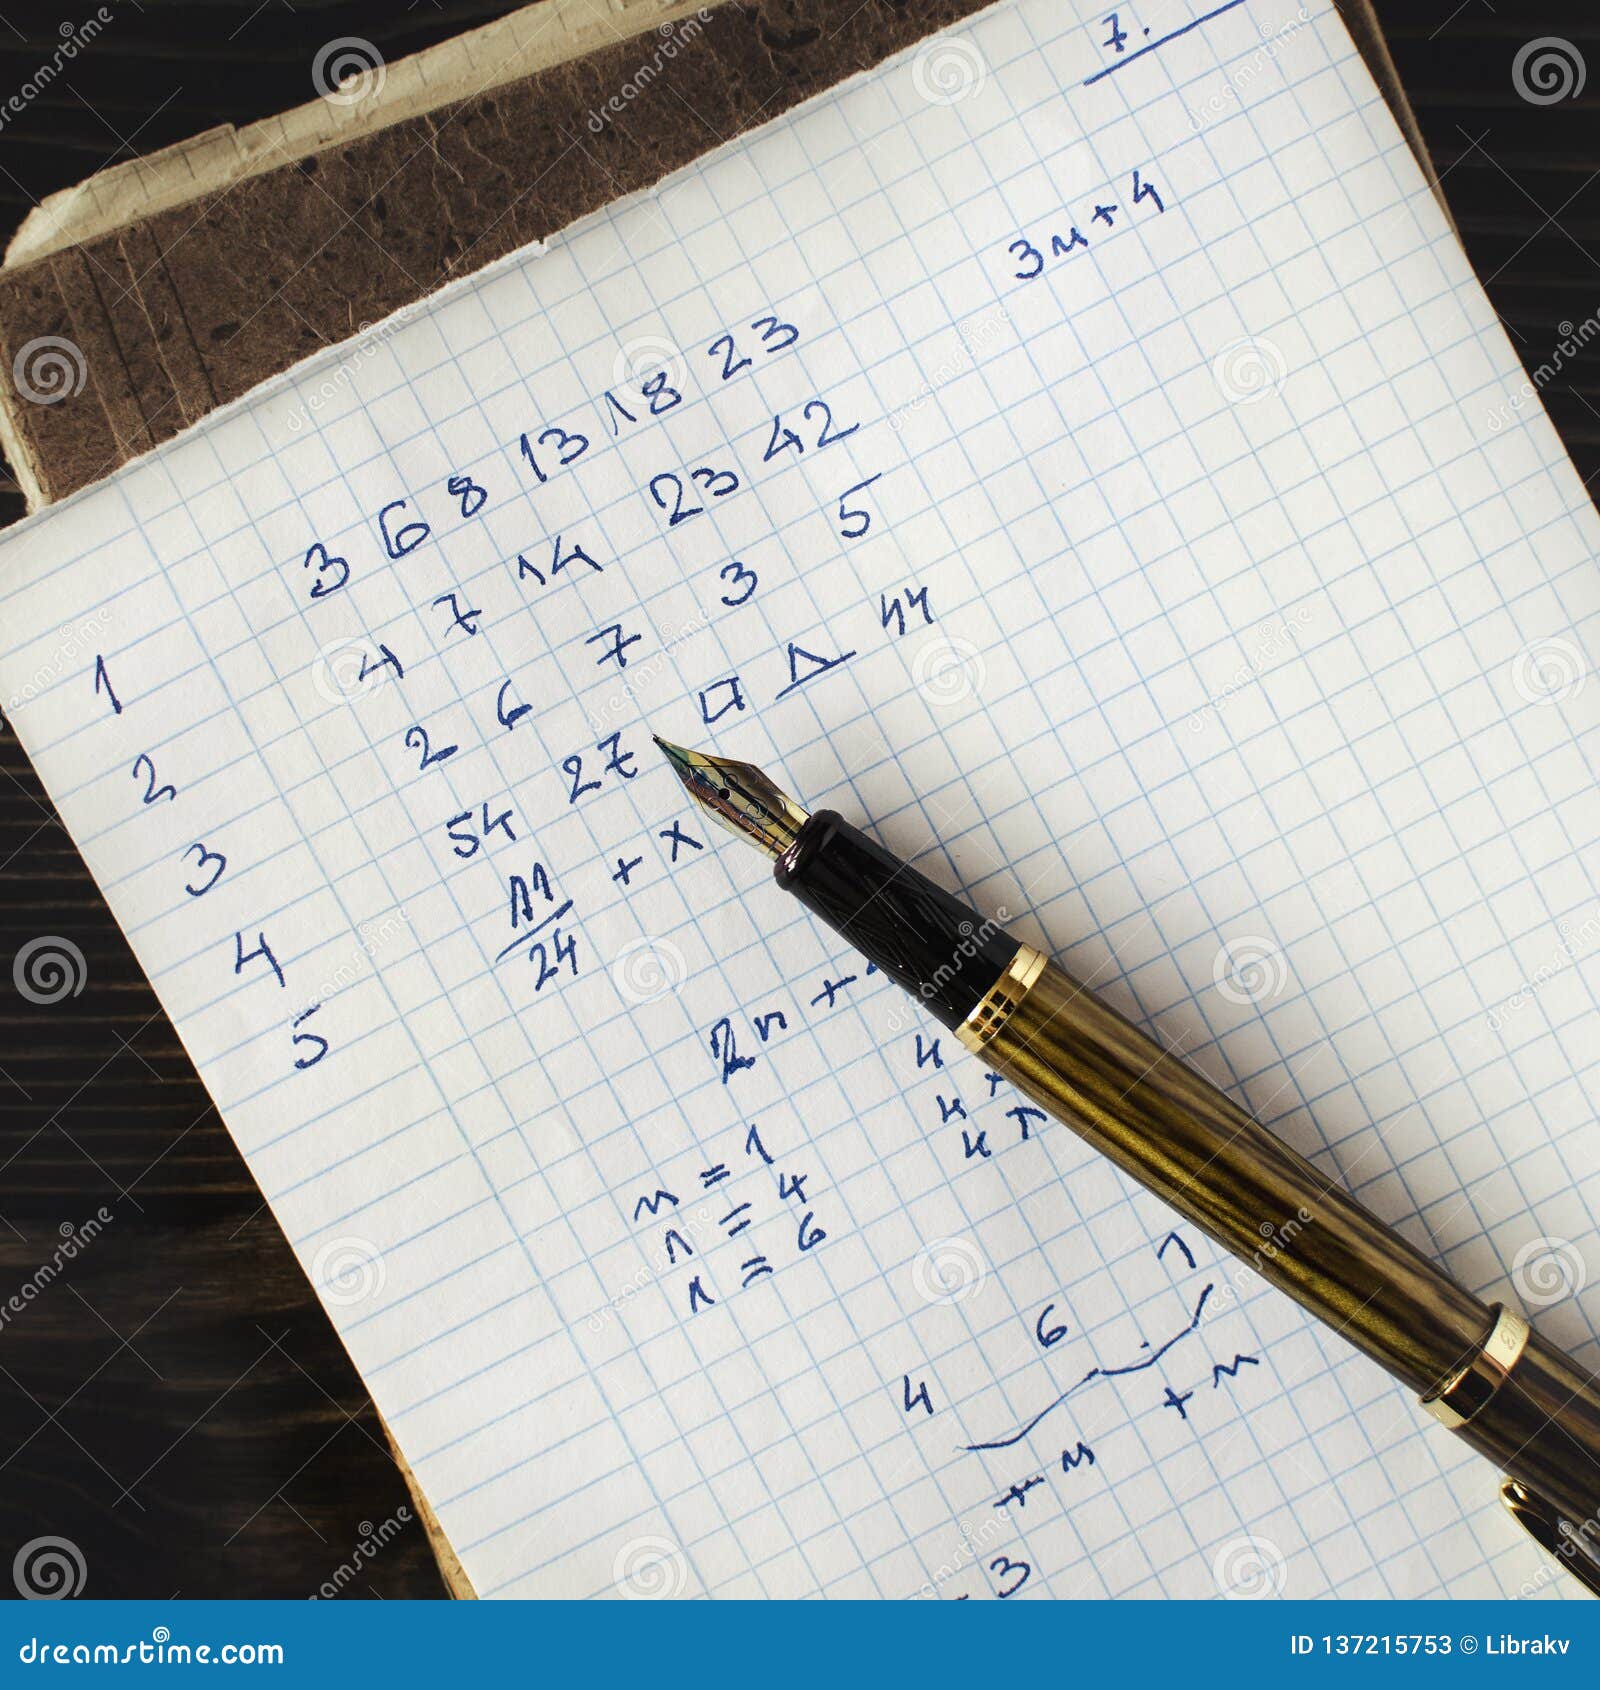 7.
3n+4
1 3 6 8 13 18 23
2 4 7 14 23 42
3 2 6 7 3 5
4 54 27 □ △ 44
5 11/24 + x
2n +
n = 1
n = 4
n = 6
4 6 7
+ n + n
3
dreamstime.com
ID 137215753 © Librakv